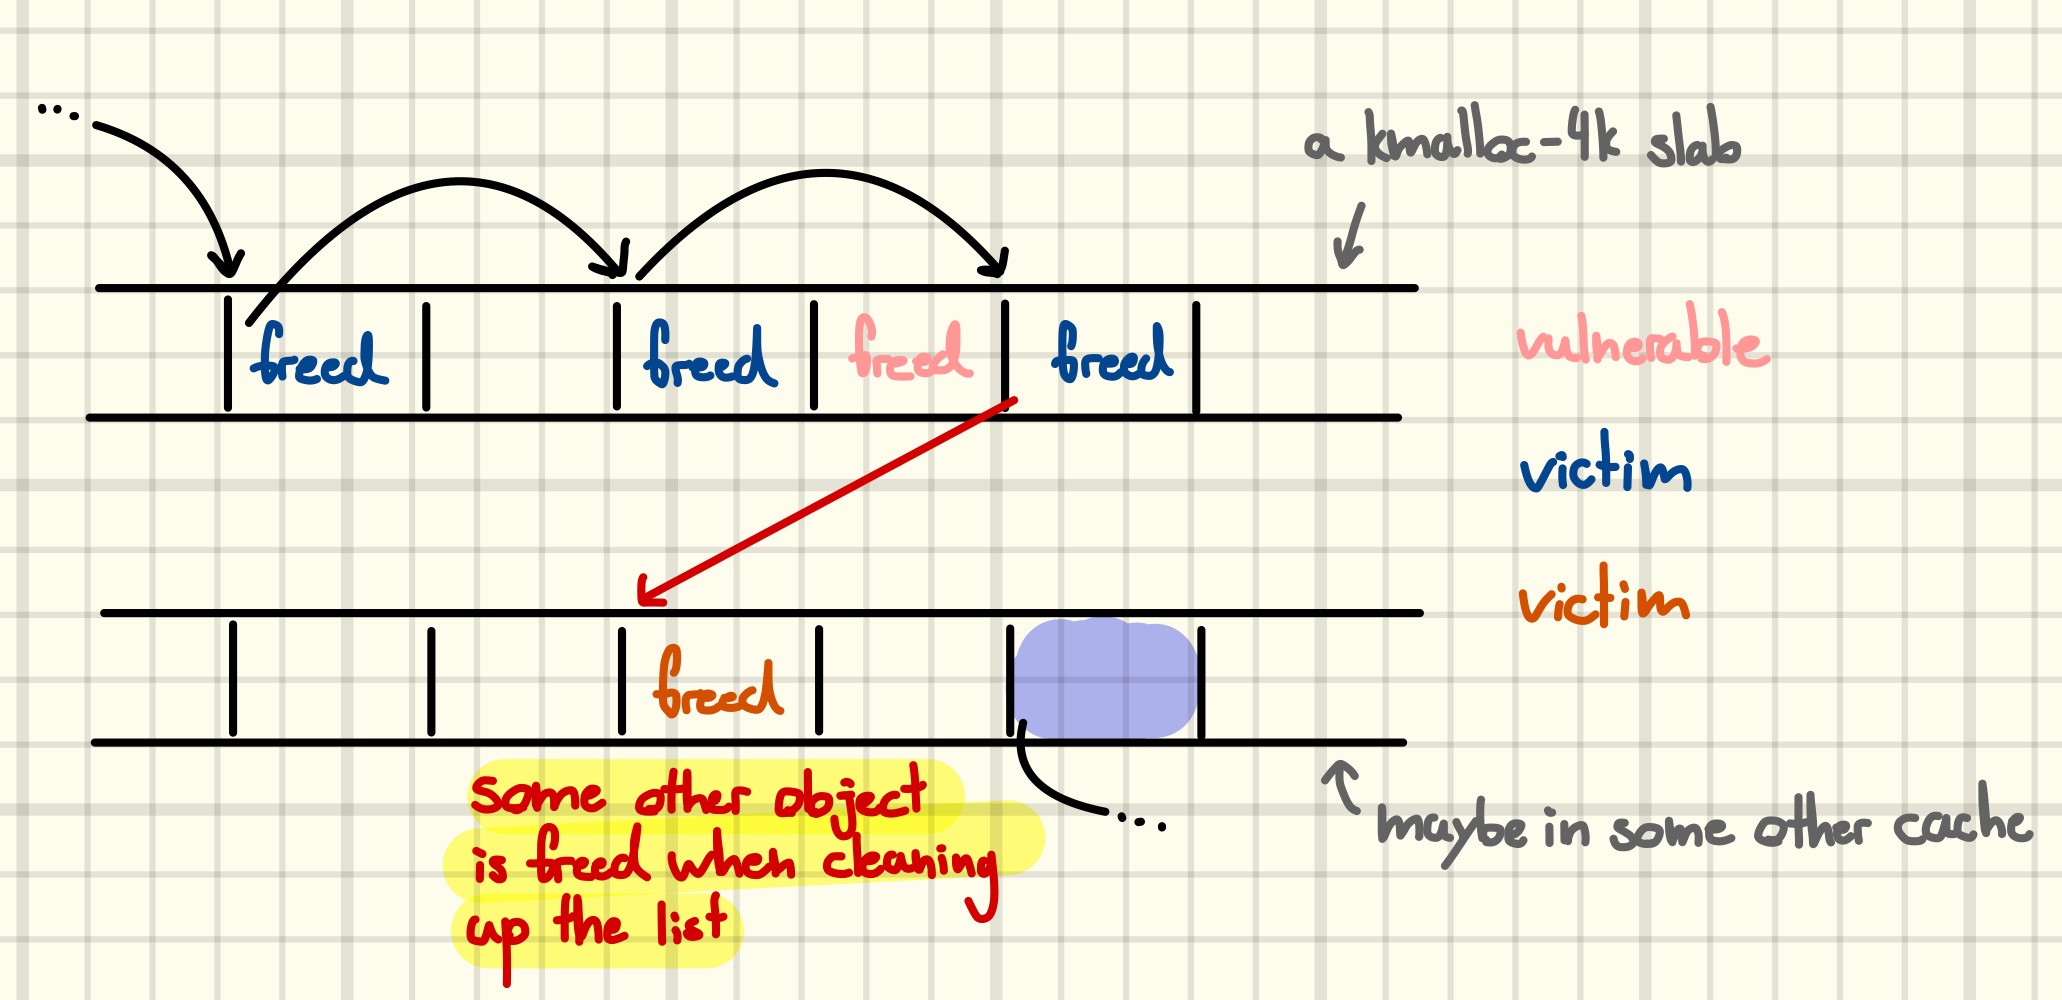 a kmalloc-4k slab
freed freed freed freed
vulnerable
victim
victim
freed
some other object
is freed when cleaning
up the list
maybe in some other cache